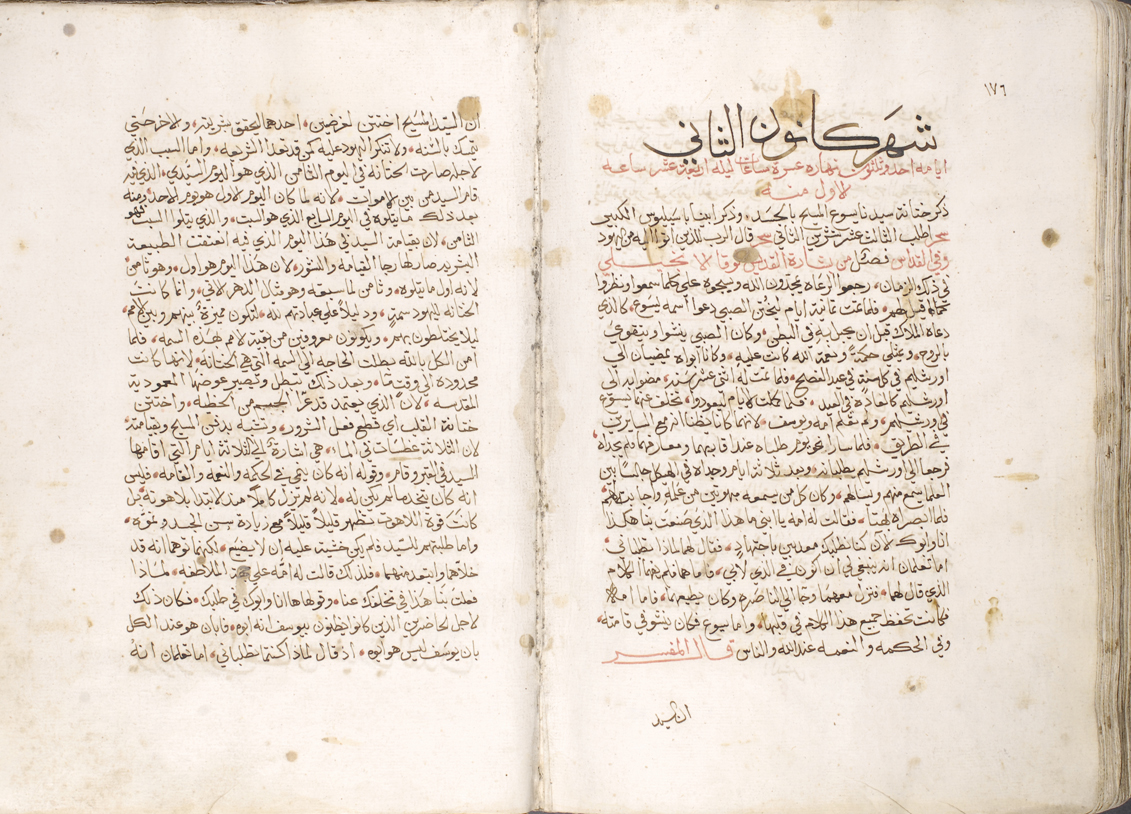 ١٧٦
شهر كانون الثاني
ايامه احد وثلثون نهاره عشرة ساعات ليله اربعة عشر ساعه
لاول منه
ذكر ختانة سيدنا يسوع المسيح بالجسد، وذكر ابينا باسيليوس الكبير
سحر اطلب الثالث عشر تشرين الثاني سحر قال الرب للذين اتوا اليه من اليهود
وفي القداس فصل من بشارة القديس لوقا الانجيلي
في ذلك الزمان، رجعوا الرعاه يمجدون الله ويسبحوه على كلما سمعوا ونظروا
كما قيل لهم، فلما تمت ثمانية ايام ليختن الصبي دعوا اسمه يسوع، كالذي
دعاه الملاك قبل ان يحبل به في البطن، وكان الصبي ينشوا ويتقوى
بالروح، ويمتلى حكمةً ونعمة الله كانت عليه، وكانا ابواه يمضيان الى
اورشليم في كل سنة في عيد الفصح، فلما تمت له اثنى عشر سنه، مضوا به الى
اورشليم كالعادة في العيد، فلما كملت الايام ليعودوا، تخلف عنهما يسوع
في اورشليم، ولم تعلم امه ويوسف، لانهما كانا يظنا انه مع السايرين
في الطريق، فلما سارا نحو يوم طلباه عند اقربايهما ومعارفهما فلم يجداه
فرجعا الى اورشليم يطلبانه، وبعد ثلاثة ايام وجداه في الهيكل جالسًا بين
العلما يسمع منهم ويسالهم، وكان كل من يسمعه مبهوتين من علمه واجابته لهم
فلما ابصراه بهتا، فقالت له امه يا ابني ما هذا الذي صنعت بنا هكذا
انا وابوك لان كنا نطلبك معذبين باجتهادٍ، فقال لهما لماذا تطلباني،
اما تعلمان انه ينبغي لي ان اكون في الذي لابي، فاما هما فلم يفهما الكلام
الذي قال لهما، فنزل معهما وجا الى الناصره وكان يطيعهما، فاما امه
فكانت تحفظ جميع هذا الكلام في قلبها، واما يسوع فكان ينشو في قامته،
وفي الحكمه والنعمه عند الله والناس قال المفسر
ان السيد
ان السيد المسيح اختتن لغرضين، احدهما ليحقق بشريته، والاخر حتي
تقيد بالسنه، ولا تنكر اليهود عليه كمن قد تعدا الشريعه، واما السبب الذي
لاجله صارت الختانه في اليوم الثامن الذي هو اليوم السيدي، الذي فيه
قام السيد من بين الاموات، لانه لما كان اليوم الاول هو يوم الاحد، ومنه
بعد ذلك ما يتلوه في اليوم السابع الذي هو السبت، والذي يتلوا السبت فهو
الثامن، لان بقيامة السيد في هذا اليوم الذي فيه انعتقت الطبيعة
البشريه صار لها رجا القيامه والنشور، لان هذا اليوم هو اول، وهو ثامن
لانه اول ما يتلوه، وثامن لما سبقه وهو مثال الدهر الاتي، وانما كانت
الختانه لليهود سمةً، ودليلاً على عبادتهم لله، لتكون مميزةً بينهم وبين الامم
لئلا يختلطون بهم، ويكونون معروفين من بقية الامم بهذه السمه، فلما
امن الكل بالله بطلت الحاجه الى السمه التي هي الختانه، لانها كانت
محدوده الى وقتٍ ما، وبعد ذلك تبطل وتصير عوضها المعمودية
المقدسه، لان الذي يعتمد قد عرّا الجسم من الخطيه، واختتن
ختانة القلب اي قطع فعل الشرور، وتشبه بدفن المسيح وبقيامته
لان الثلاثة غطسات في الماء، هي اشارة الى الثلاثة ايام التي اقامها
السيد في القبر وقام، وقوله انه كان ينمي في الحكمه والنعمه والقامه، فليس
انه كان يتخذ ما لم يكن له، لانه لم يزل كاملاً منذ الابتدا بلاهوته، بل
كانت قوة اللاهوت تظهر قليلاً قليلاً مع زياده سن الجسد ونموه،
واما طلبتهم للسيد فلم يكن خشية عليه ان لا يضيع، لكنهما توهما انه قد
خلاهما وابتعد منهما، فلذلك قالت له امه على الملاطفه، لماذا
فعلت بنا هذا في تخلفك عنا، وقولها ها انا وابوك في طلبك، فكان ذلك
لاجل الحاضرين الذين كانوا يظنون بيوسف انه ابوه، فابان هو عند الكل
بان يوسف ليس هو ابوه، اذ قال لماذا كنتما تطلباني، اما تعلمان انه